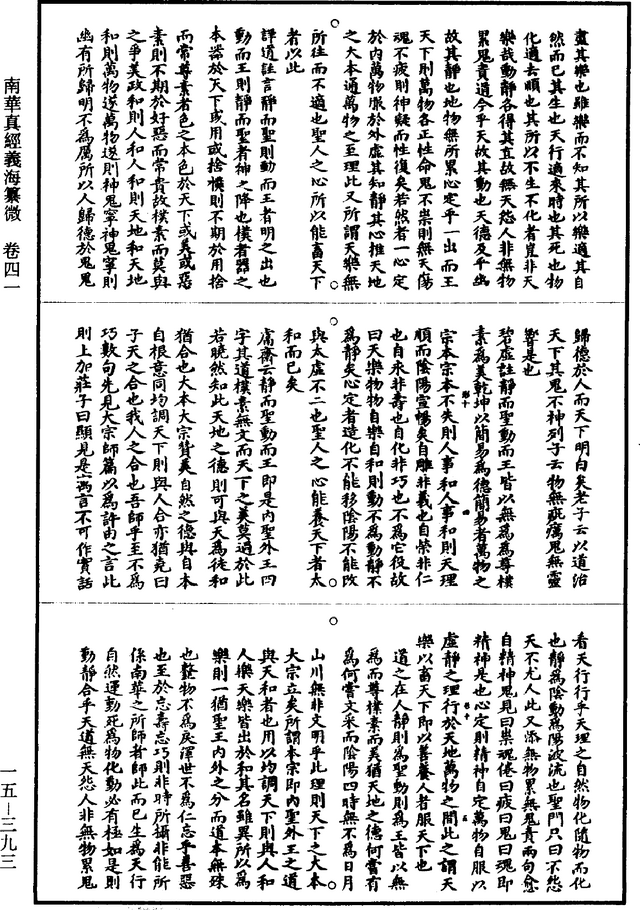 盡其樂也雖樂而不知其所以樂適其自
然而已其生也天行適來時也其死也物
化適去順也其所以不生不化者豈非天
樂哉動靜各得其宜故無天怨人非無物
累鬼責適今乎天故其動也天德及乎幽
故其靜也地物無所累心定乎一出而王
天下則萬物各正性命鬼不祟則無天傷
魂不疲則神凝而性復矣若然者一心定
於內萬物服於外虛其知靜其心推天地
之大本通萬物之至理此又所謂天樂無
所往而不適也聖人之心所以能畜天下
者以此
詳道註言靜而聖則動而王者明之出也
動而王則靜而聖者神之降也樸者器之
本器於天下或用或捨樸則不期於用捨
而常尊素者色之本色於天下或美或惡
素則不期於好惡而常貴故樸素而莫與
之爭美政和則人和人和則天地和天地
和則萬物遂萬物遂則神鬼寧神鬼寧則
幽有所歸明不為厲所以人歸德於鬼鬼
歸德於人而天下明白矣老子云以道治
天下其鬼不神列子云物無疵癘鬼無靈
響是也
碧虛註靜而聖動而王皆以無為為尊樸
素為美乾坤以簡易為德簡易者萬物之
宗本宗本不失則人事和人事和則天理
順而陰陽宣暢矣自雕非義也自榮非仁
也自永非壽也自化非巧也不為它役故
曰天樂物物自樂自和則動不為動靜不
為靜矣心定者造化不能移陰陽不能改
與太虛不二也聖人之心能養天下者太
和而已矣
鬳齋云靜而聖動而王即是內聖外王四
字其道樸素無文而天下之美莫過於此
若曉然知此天地之德則可與天為徒和
猶合也大本大宗贊美自然之德與自本
自根意同均調天下則與人合亦猶堯曰
子天之合也我人之合也吾師乎至不為
巧數句先見大宗師篇以為許由之言此
則上加莊子曰顯見是寓言不可作實話
看天行行乎天理之自然物化隨物而化
也靜為陰動為陽波流也聖門只曰不怨
天不尤人此又添無物累無鬼責兩句愈
自精神鬼見曰祟魂倦曰疲曰鬼曰魂即
精神是也心定則精神自定萬物自服以
虛靜之理行於天地萬物之間此之謂天
樂以畜天下即以善養人者服天下也
道之在人靜則為聖動則為王皆以無
為而尊樸素而美猶天地之德何嘗有
為何嘗文采而陰陽四時無不為日月
山川無非文明乎此理則天下之大本
大宗立矣所謂本宗即內聖外王之道
與天和者也用以均調天下則與人和
人樂天樂皆出於和其名雖異所以為
樂則一猶聖王內外之分而道本無殊
也䪠物不為戾澤世不為仁忘乎善惡
也至於忘壽忘巧則非時所攝非能所
係南華之所師者師此而已生為天行
自然運動死為物化動必有極如是則
動靜合乎天道無天怨人非無物累鬼
南華真經義海纂微　卷四一
一五—三九三